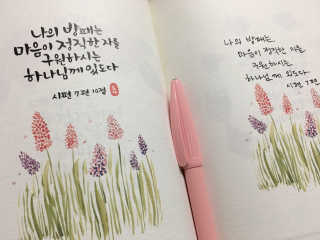 나의 방패는
마음이 정직한 자를
구원하시는
하나님께 있도다
시편 7편 10절
나의 방패는,
마음이 정직한 자를,
구원하시는,
하나님께 있도다.
시편 7편